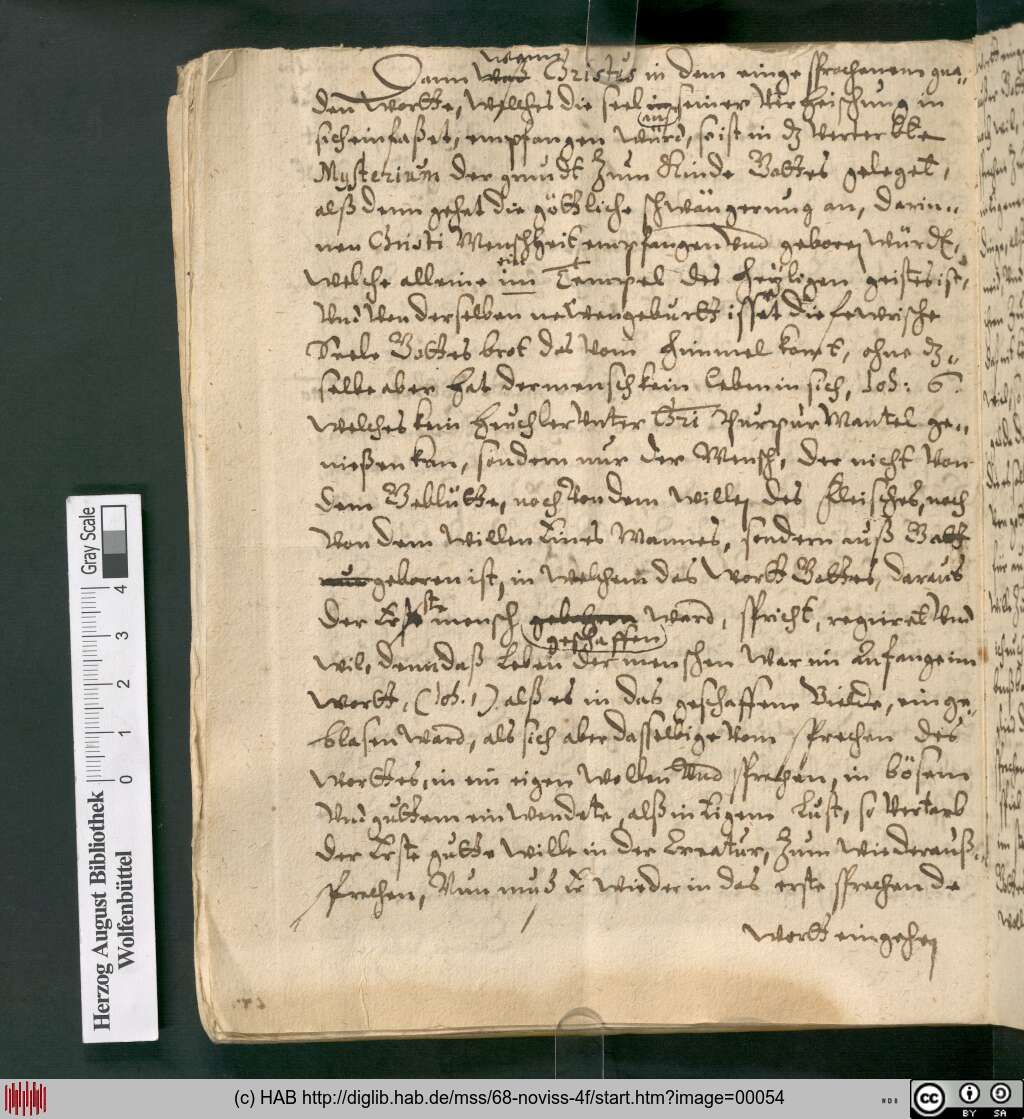 Dann wann Christus in dem eingesprochenem gna-
den Wortte, welches die seel in seiner Verheischung in
sich einfaßet, empfangen würd, so ist in dz verterbte
Mysterium der grundt zum Kinde Gottes geleget,
alß denn gehet die göttliche schwängerung an, darin-
nen Christi Menschheit empfangen vnd geboren würdt,
welche alleine ein Tempel des heyligen geistes ist,
Vnd von derselben newen geburtt isset die fewrische
Seele Gottes brot das vom himmel komt, ohne dz-
selbe aber hat der mensch kein leben in sich, Joh: 6.
welches kein heuchler vnter Chri Purpur Mantel ge-
nießen kan, sondern nur der Mensch, der nicht von
dem Geblütte, noch von dem willen des fleisches, noch
von dem willen Eines Mannes, sondern auß Gott
geboren ist, in welchem das Wortt Gottes, daraus
der Erste mensch geschaffen ward, spricht, regiret vnd
wil, denn daß Leben der menschen war im Anfange im
wortt, (Joh. 1) alß es in das geschaffene Bielde, einge-
blasen ward, als sich aber dasselbige vom sprechen des
worttes, in ein eigen wollen vnd sprechen, in bösem
vnd guttem ein wendete, alß in Eigene Lust, so verterb
der Erste gutte wille in der Creatur, zum wiederauß-
sprechen, Nun muß Er wieder in das erste sprechende
wortt eingehen
Gray Scale
4 3 2 1 0
Herzog August Bibliothek
Wolfenbüttel
(c) HAB http://diglib.hab.de/mss/68-noviss-4f/start.htm?image=00054
cc BY SA